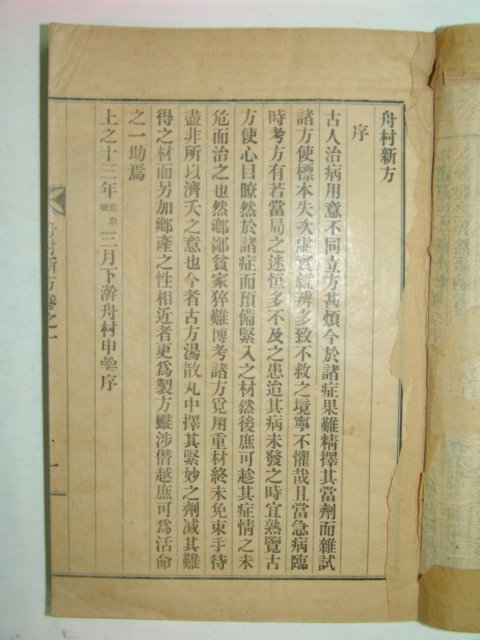 舟村新方
序
古人治病用意不同立方甚煩今於諸症果難精擇其當劑而雜試
諸方使標本失次虛實難辨多致不救之境寧不懼哉且當急病臨
時考方有若當局之迷恒多不及之患治其病未發之時宜熟覽古
方使心目瞭然於諸症而預備緊入之材然後庶可趁其症情之未
危而治之也然鄉鄙貧家猝難博考諸方覓用重材終未免束手待
盡非所以濟夭之意也今者古方湯散丸中擇其緊妙之劑减其難
得之材而另加鄉產之性相近者更爲製方雖涉僭越庶可爲活命
之一助焉
上之十三年三月下澣舟村申彝序
舟村新方卷之一